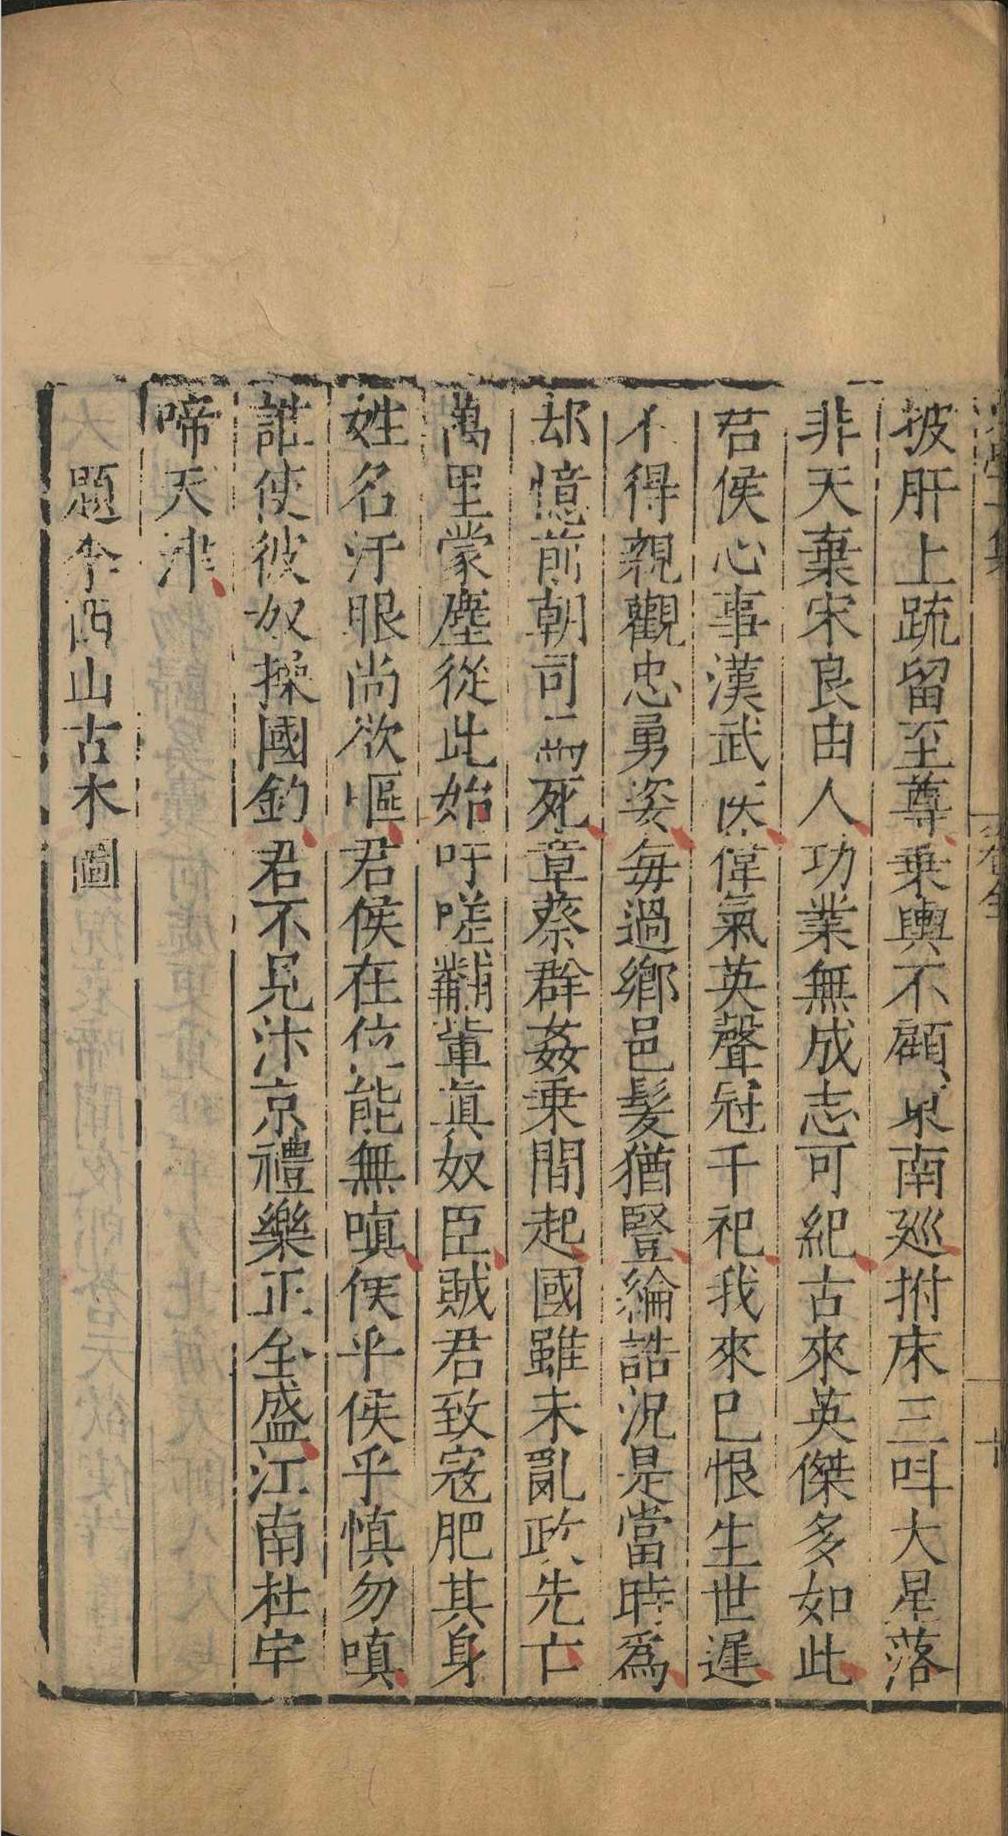 披肝上疏留至尊乗輿不顧東南廵拊床三呌大星落
非天棄宋良由人功業無成志可紀古來英傑多如此
君侯心事漢武侯偉氣英聲冠千祀我來巳恨生世遲
不得親觀忠勇姿每過鄉邑髮猶豎綸誥況是當時爲
却憶前朝司馬死章蔡群姦乗間起國雖未亂政先亡
萬里蒙塵從此始吁嗟黼輩眞奴臣賊君致寇肥其身
姓名汙眼尚欲嘔君侯在位能無嗔侯乎侯乎慎勿嗔
誰使彼奴操國鈞君不見汴京禮樂正全盛江南杜宇
啼天津
題李西山古木圖